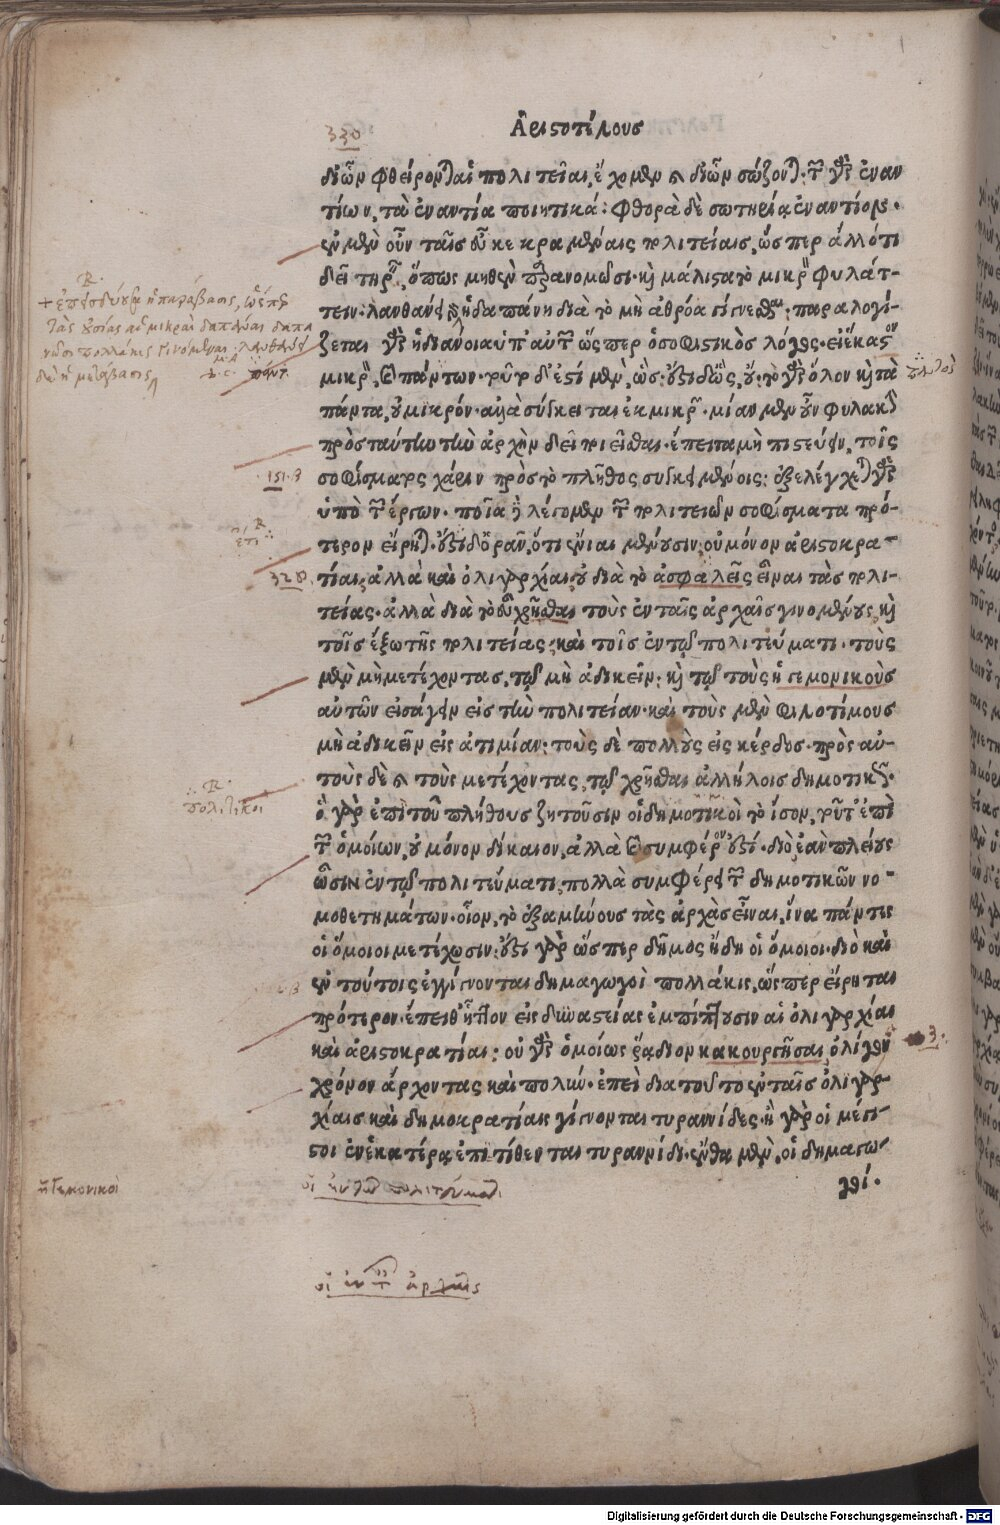 330
Ἀριστοτέλους
δι' ὧν φθείρονται αἱ πολιτεῖαι, ἔχομεν καὶ δι' ὧν σώζονται· τῶν γὰρ ἐναν
τίων, τὰ ἐναντία ποιητικά: φθορὰ δὲ σωτηρίᾳ ἐναντίον·
ἐν μὲν οὖν ταῖς εὖ κεκραμέναις πολιτείαις, ὥσπερ ἄλλό τι
δεῖ τηρεῖν, ὅπως μηθὲν παρανομῶσι· καὶ μάλιστα τὸ μικρὸν φυλάτ-
τειν· λανθάνει γὰρ ἡ δαπάνη διὰ τὸ μὴ ἀθρόα γίγνεσθαι· παραλογί-
ζεται γὰρ ἡ διάνοια ὑπ' αὐτῶν ὥσπερ ὁ σοφιστικὸς λόγος· εἰ ἕκαστον
μικρὸν, καὶ πάντα· τοῦτο δ' ἐστὶ μὲν, ὥς· ἐστὶ δ' ὡς, οὔ· τὸ γὰρ ὅλον καὶ τὰ
πάντα, οὐ μικρόν· ἀλλὰ σύγκειται ἐκ μικρῶν· μίαν μὲν οὖν φυλακὴν
πρὸς ταύτην τὴν ἀρχὴν δεῖ ποιεῖσθαι· ἔπειτα μὴ πιστεύειν, τοῖς
σοφίσματος χάριν πρὸς τὸ πλῆθος συγκειμένοις: ἐξελέγχεται γὰρ
ὑπὸ τῶν ἔργων· ποῖα δὲ λέγομεν τῶν πολιτειῶν σοφίσματα πρό-
τερον εἴρηται· ἔτι δ' ὁρᾶν, ὅτι ἔνιαι μένουσιν, οὐ μόνον ἀριστοκρα-
τίαι, ἀλλὰ καὶ ὀλιγαρχίαι, οὐ διὰ τὸ ἀσφαλεῖς εἶναι τὰς πολι-
τείας· ἀλλὰ διὰ τὸ εὖ χρῆσθαι τοὺς ἐν ταῖς ἀρχαῖς γινομένους, καὶ
τοῖς ἔξω τῆς πολιτείας, καὶ τοῖς ἐν τῷ πολιτεύματι· τοὺς
μὲν μὴ μετέχοντας, τῷ μὴ ἀδικεῖν· καὶ τῷ τοὺς ἡγεμονικοὺς
αὐτῶν εἰσάγειν εἰς τὴν πολιτείαν· καὶ τοὺς μὲν φιλοτίμους
μὴ ἀδικεῖν εἰς ἀτιμίαν: τοὺς δὲ πολλοὺς εἰς κέρδος· πρὸς αὐ-
τοὺς δὲ καὶ τοὺς μετέχοντας, τῷ χρῆσθαι ἀλλήλοις δημοτικῶς·
ὃ γὰρ ἐπὶ τοῦ πλήθους ζητοῦσιν οἱ δημοτικοὶ τὸ ἴσον, τοῦτ' ἐπὶ
τῶν ὁμοίων, οὐ μόνον δίκαιον, ἀλλὰ καὶ συμφέρον ἐστί· διὸ ἐὰν πλείους
ὦσιν ἐν τῷ πολιτεύματι, πολλὰ συμφέρει τῶν δημοτικῶν νο-
μοθετημάτων· οἷον, τὸ ἑξαμήνους τὰς ἀρχὰς εἶναι, ἵνα πάντες
οἱ ὅμοιοι μετέχωσιν: ἔστι γὰρ ὥσπερ δῆμος ἤδη οἱ ὅμοιοι· διὸ καὶ
ἐν τούτοις ἐγγίγνονται δημαγωγοὶ πολλάκις, ὥσπερ εἴρηται
πρότερον· ἔπειθ' ἧττον εἰς δυναστείας ἐμπίπτουσιν αἱ ὀλιγαρχίαι
καὶ ἀριστοκρατίαι: οὐ γὰρ ὁμοίως ῥᾴδιον κακουργῆσαι, ὀλίγον
χρόνον ἄρχοντας καὶ πολύν· ἐπεὶ διὰ τοῦτο ἐν ταῖς ὀλιγαρ-
χίαις καὶ δημοκρατίαις γίγνονται τυραννίδες· ἢ γὰρ οἱ μέγι-
στοι ἐν ἑκατέρᾳ ἐπιτίθενται τυραννίδι· ἔνθα μὲν, οἱ δημαγω-
γοί·
+ ἐπεισδύουσα ἡ παράβασις, ὥσπερ
τὰς οὐσίας αἱ μικραὶ δαπάναι δαπα
νῶσι πολλάκις γινόμεναι· λανθάνει
δὲ ἡ μετάβασις
151·3
ἔτι
328
πολιτικοὶ
3
ἡγεμονικοὶ
οἱ ἐν τῷ πολιτεύματι
οἱ ἐν τ ἀρχαῖς
Digitalisierung gefördert durch die Deutsche Forschungsgemeinschaft - DFG